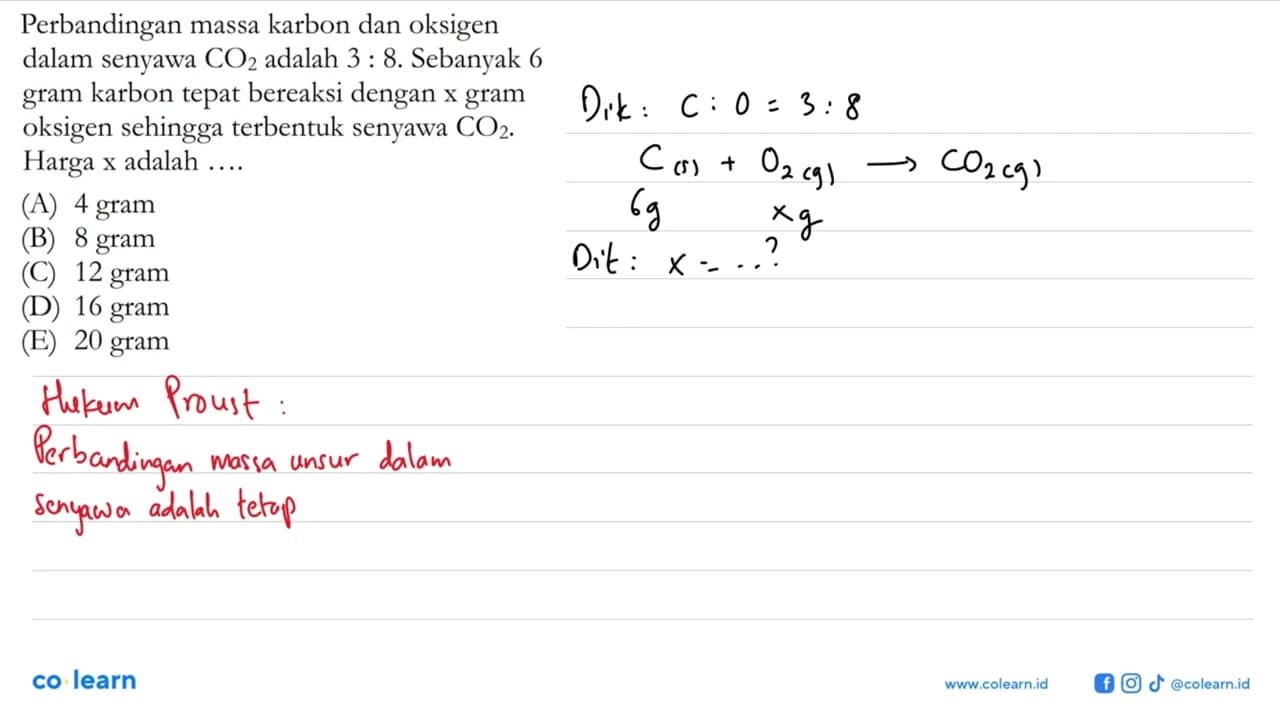 Perbandingan massa karbon dan oksigen
dalam senyawa CO₂ adalah 3 : 8. Sebanyak 6
gram karbon tepat bereaksi dengan x gram
oksigen sehingga terbentuk senyawa CO₂.
Harga x adalah ....
(A) 4 gram
(B) 8 gram
(C) 12 gram
(D) 16 gram
(E) 20 gram
Dik : C : O = 3 : 8
C (s) + O₂ (g) → CO₂ (g)
6g x g
Dit : x = ...?
Hukum Proust :
Perbandingan massa unsur dalam
senyawa adalah tetap
co learn
www.colearn.id
@colearn.id